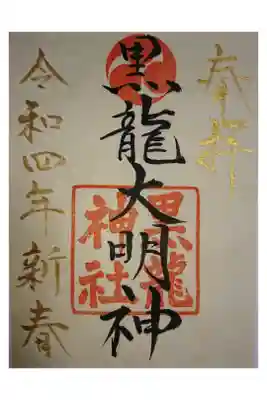 奉拝
黒龍大明神
黒龍神社
令和四年新春